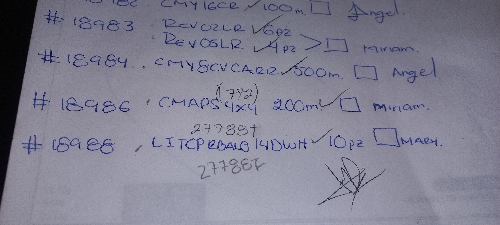 CMY16CR ✓ 100m ☐ Angel.
#18983 REVO2LR ✓ 6pz
REVO5LR ✓ 4pz > ☐ Miriam.
#18984. CMY8CVCAR22 ✓ 500m. ☐ Angel
#18986 . CMAPS 4x4 (742) 200m ✓ ☐ Miriam.
277887
#18988 . ✓ 10pz ☐ MARY.